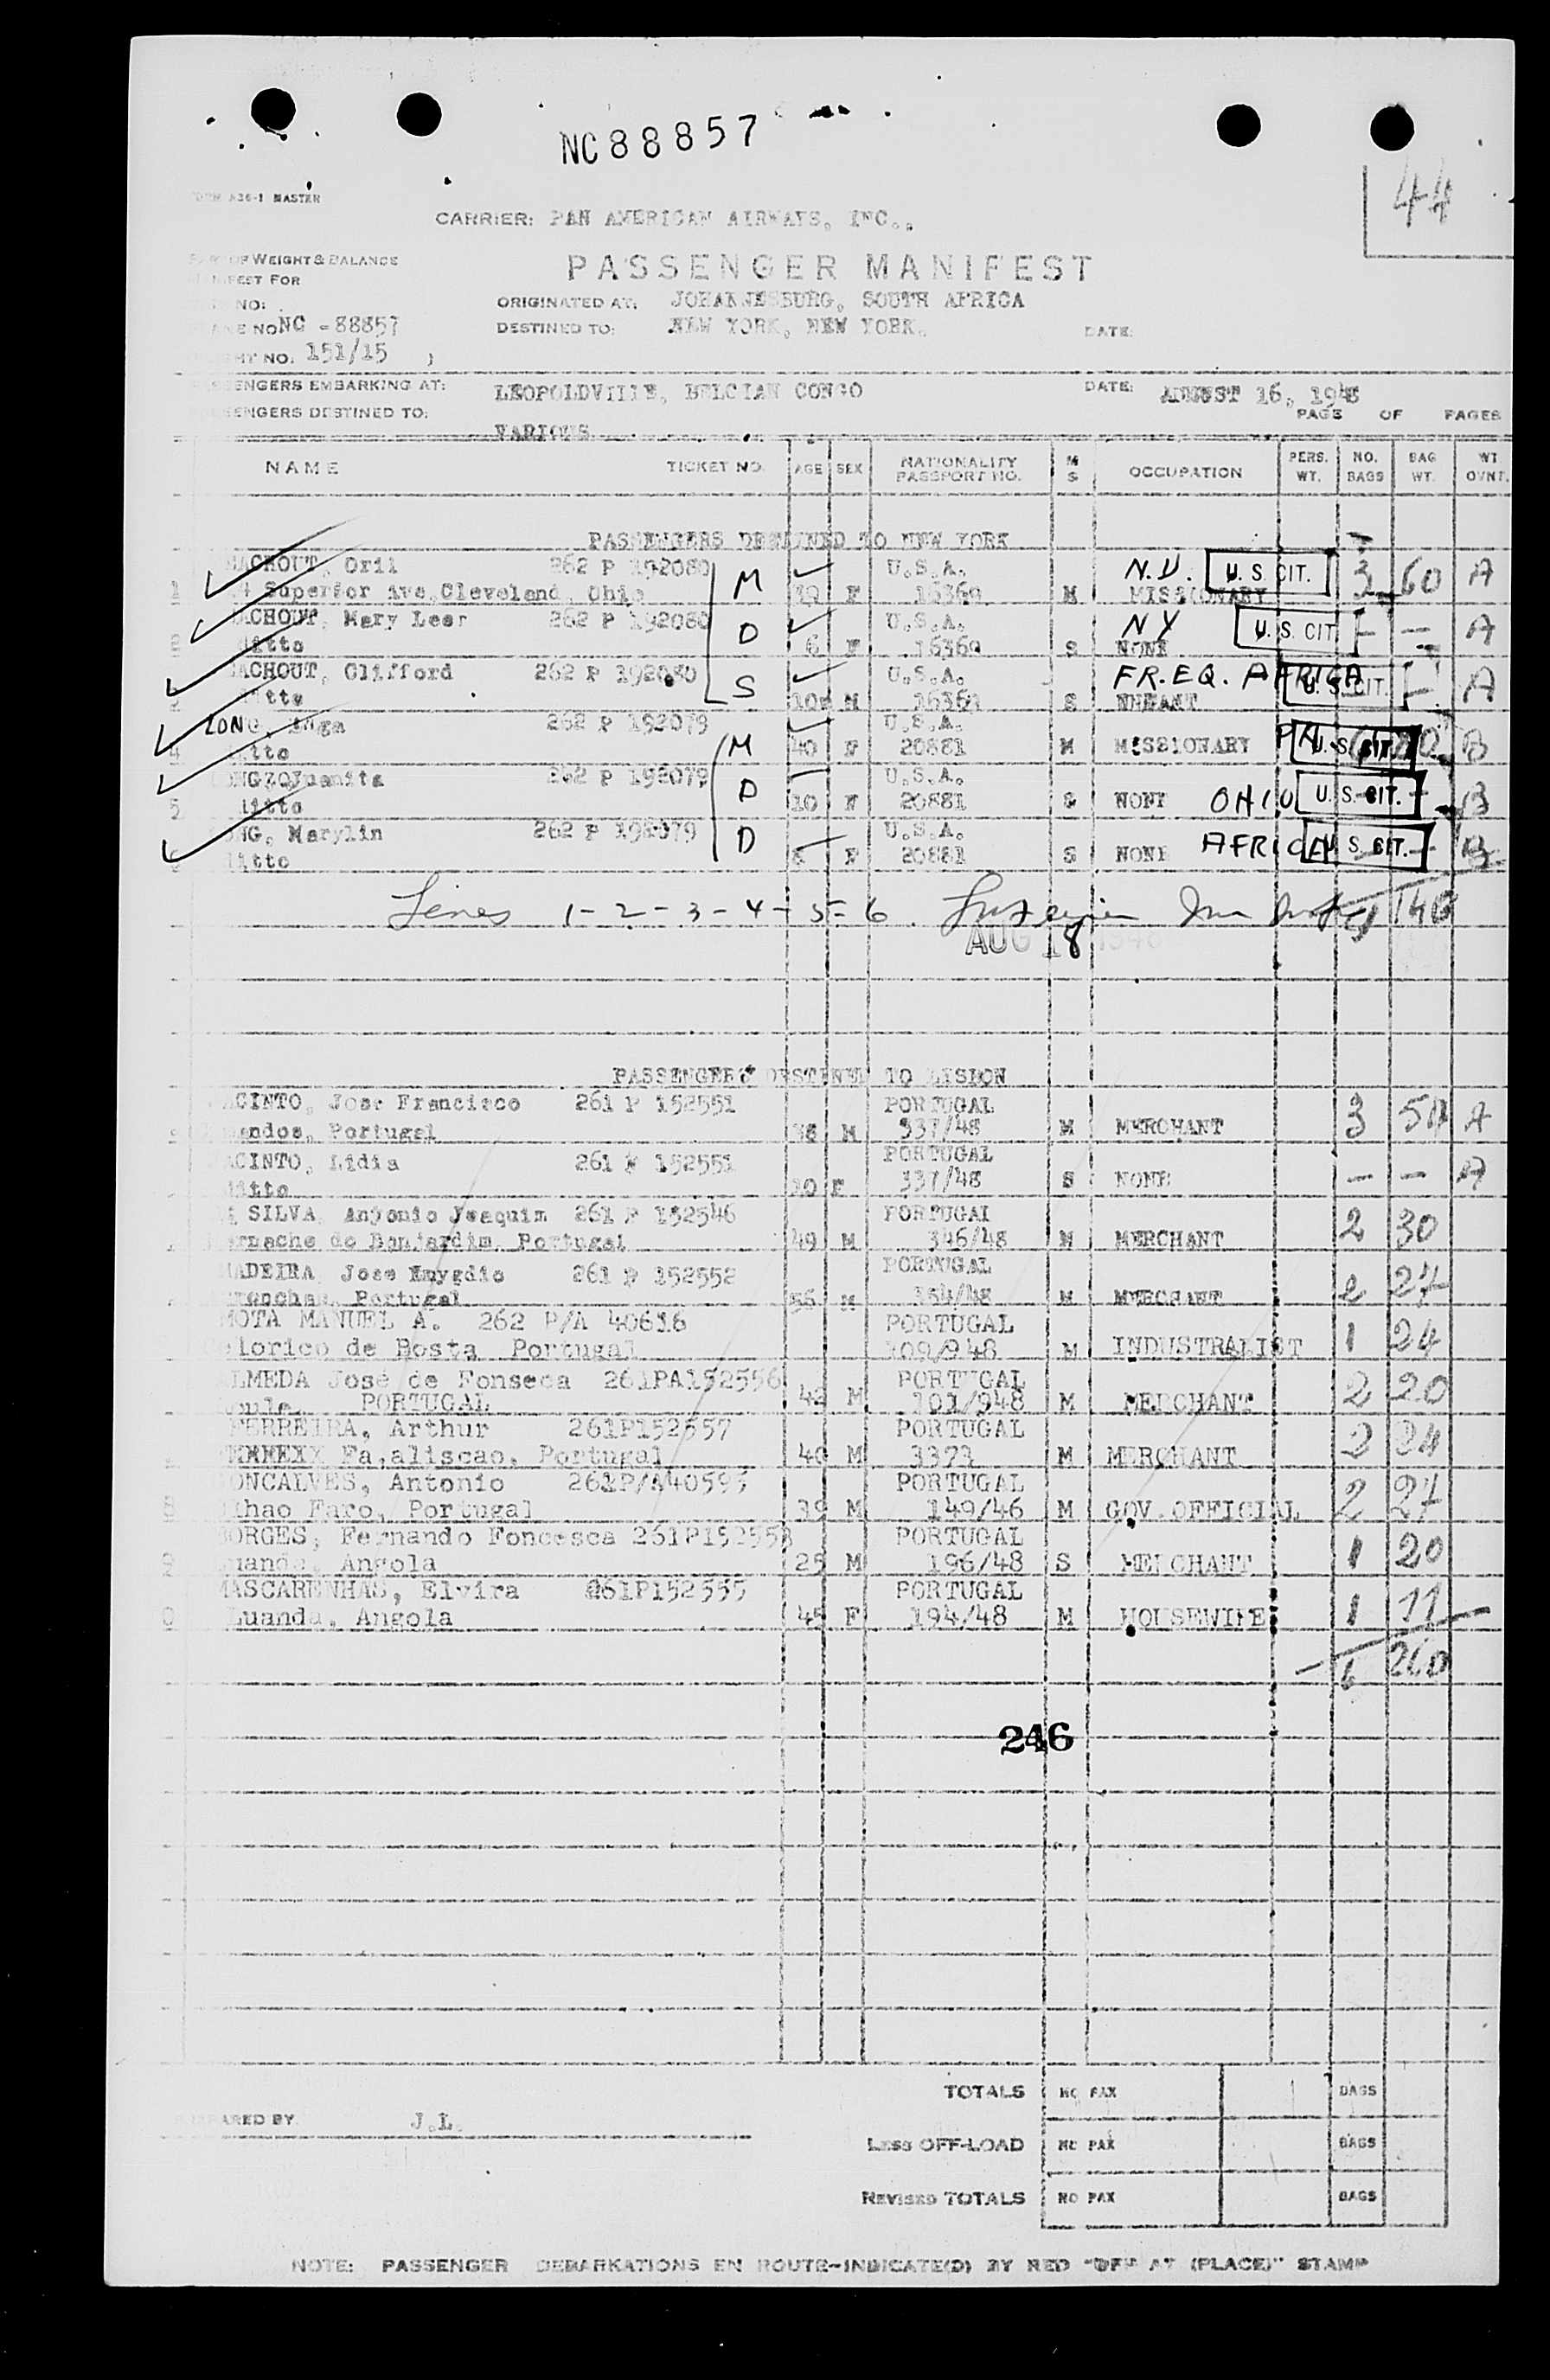 NC88857
44
A36-1 MASTER
CARRIER: PAN AMERICAN AIRWAYS, INC.,
OF WEIGHT & BALANCE
FOR
PASSENGER MANIFEST
NO:
ORIGINATED AT: JOHANNESBURG, SOUTH AFRICA
NO NC -88857
DESTINED TO: NEW YORK, NEW YORK.
DATE:
NO. 151/15
EMBARKING AT: LEOPOLDVILLE, BELGIAN CONGO
DATE: AUGUST 16, 1948
DESTINED TO: VARIOUS
PAGE OF PAGES
NAME TICKET NO. AGE SEX NATIONALITY PASSPORT NO. M S OCCUPATION PERS. WT. NO. BAGS BAG WT. WT OVNT.
PASSENGERS DESTINED TO NEW YORK
ACHOUT, Oril 262 P 192080 M U.S.A. N.Y. U.S. CIT. 3 60 A
1 Superior Ave. Cleveland, Ohio 39 F 16369 M MISSIONARY
ACHOUT, Mary Lear 262 P 192080 D U.S.A. NY U.S. CIT. - - A
2 ditto 6 F 16369 S NONE
ACHOUT, Clifford 262 P 192080 S U.S.A. FR. EQ. AFRICA U.S. CIT. - A
ditto 10 M 16369 S
LONG, Inga 262 P 192079 M U.S.A. PA U.S. CIT.
4 ditto 40 F 20881 M MISSIONARY B
Juanita 262 P 192079 D U.S.A. OHIO U.S. CIT.
5 ditto 10 F 20881 S NONE B
ONG, Marylin 262 P 192079 D U.S.A. AFRICA U.S. CIT.
6 ditto F 20881 S NONE B
Lines 1-2-3-4-5-6 140
AUG 18 1948
PASSENGERS DESTINED TO LISBON
ACINTO, Jose Francisco 261 P 152551 PORTUGAL 3 50 A
Portugal 38 M 337/48 M MERCHANT
ACINTO, Lidia 261 P 152551 PORTUGAL - - A
ditto 10 F 337/48 S NONE
SILVA, Antonio Joaquim 261 P 152546 PORTUGAL 2 30
do Bonjardim, Portugal 49 M 346/48 M MERCHANT
MADEIRA, Jose Emygdio 261 P 152552 PORTUGAL 2 27
Portugal 56 M 354/48 M MERCHANT
MOTA MANUEL A. 262 P/A 40616 PORTUGAL 1 24
Celorico de Bosta Portugal 109/948 M INDUSTRALIST
ALMEDA José de Fonseca 261PA152556 PORTUGAL 2 20
PORTUGAL 42 M 101/948 M MERCHANT
FERREIRA, Arthur 261P152557 PORTUGAL 2 24
Fa,aliscao, Portugal 40 M 3373 M MERCHANT
GONCALVES, Antonio 261P/A40593 PORTUGAL 2 27
8 lhao Faro, Portugal 39 M 149/46 M GOV. OFFICIAL
BORGES, Fernando Foncesca 261P152553 PORTUGAL 1 20
9 Luanda, Angola 25 M 196/48 S MERCHANT
MASCARENHAS, Elvira 261P152555 PORTUGAL 1 11
0 Luanda, Angola 45 F 194/48 M HOUSEWIFE
246
TOTALS NO PAX BAGS
BY J.L.
LESS OFF-LOAD NO PAX BAGS
REVISED TOTALS NO PAX BAGS
NOTE: PASSENGER DEBARKATIONS EN ROUTE-INDICATE(D) BY RED "OFF AT (PLACE)" STAMP